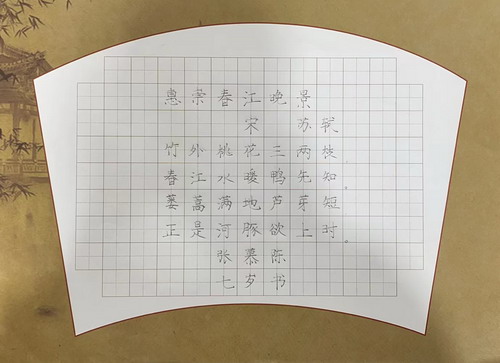 惠崇春江晚景
宋 苏轼
竹外桃花三两枝，
春江水暖鸭先知。
蒌蒿满地芦芽短，
正是河豚欲上时。
张慕陈
七岁书